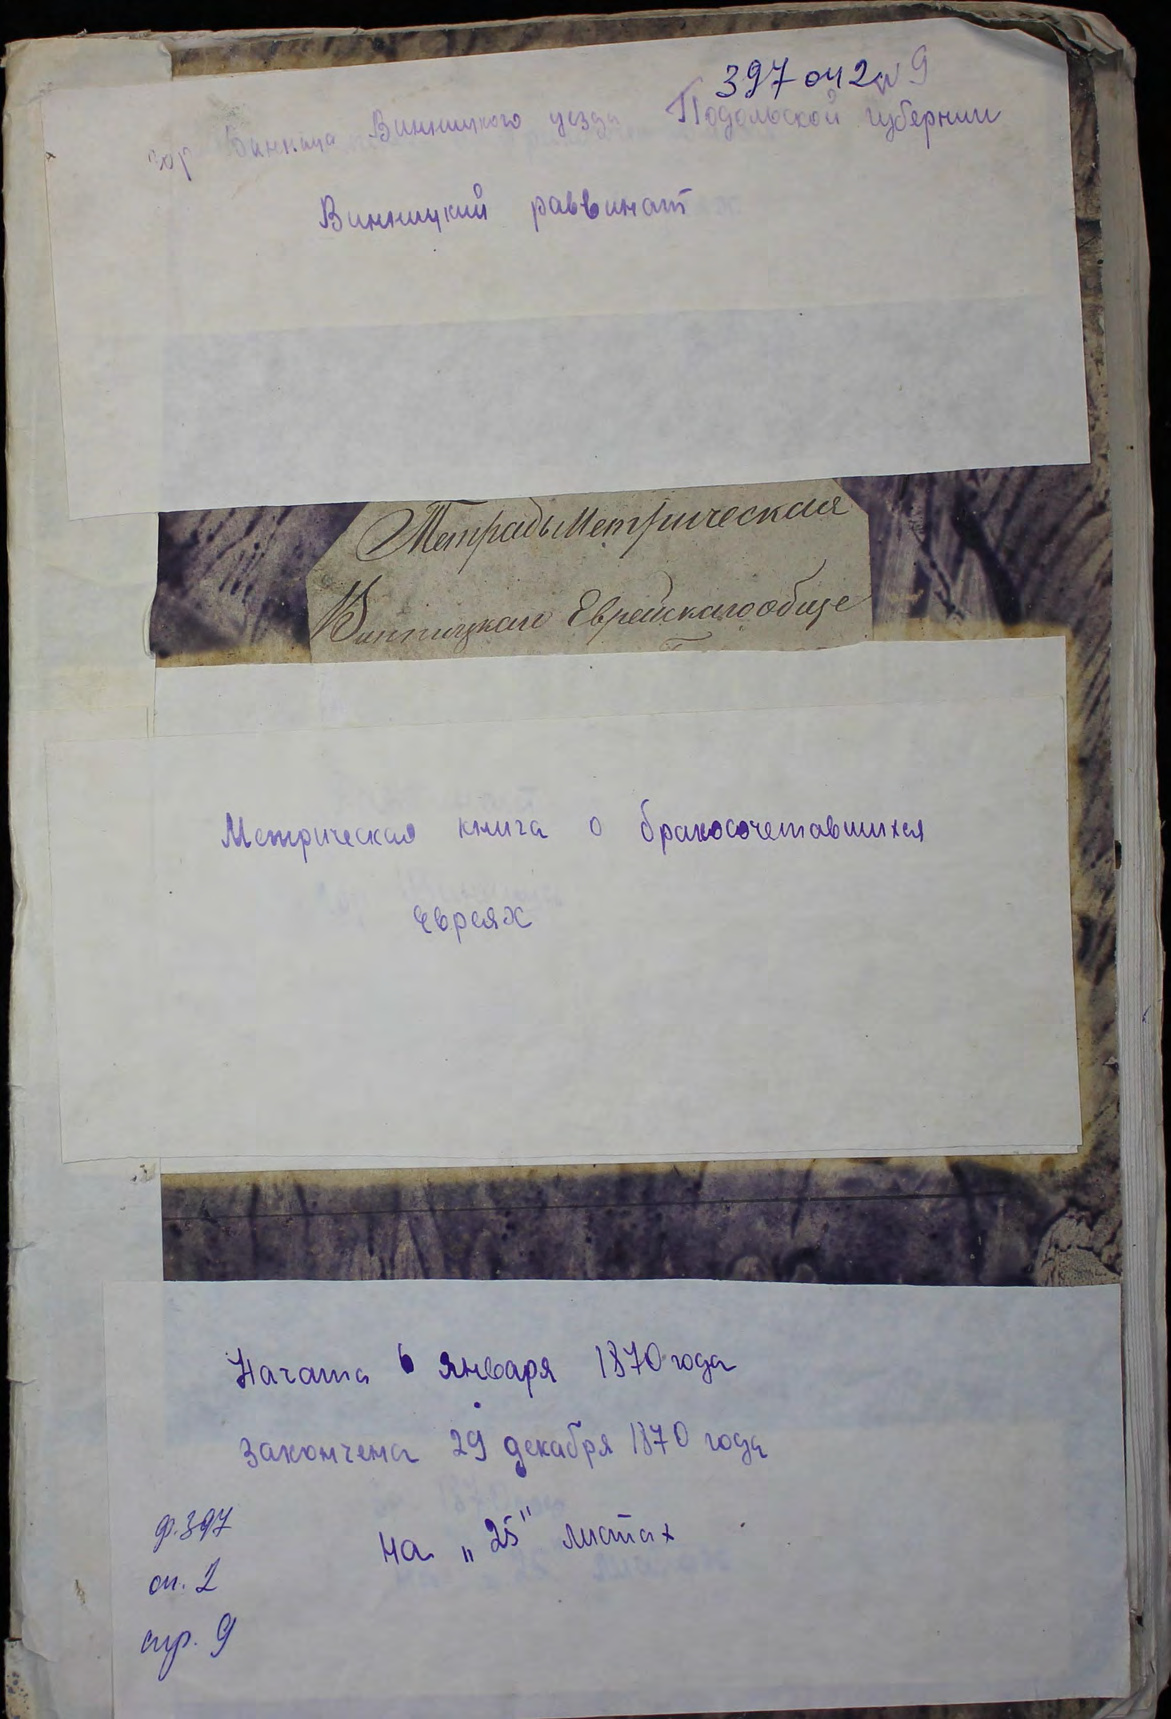 397 оп 2 д 9
гор Винница Винницкого уезда Подольской губернии
Винницкий раввинат
Тетрадь Метрическая
Винницкаго Еврейскаго обще
Метрическая книга о бракосочетавшихся
евреях
Начата 6 января 1870 года
Закончена 29 декабря 1870 года
ф. 397
на „25" листах
оп. 2
спр. 9